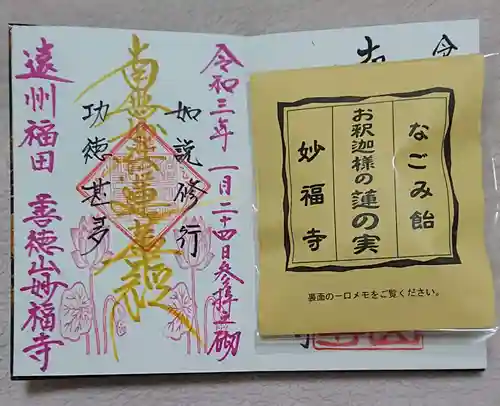 令和三年一月二十四日参拝之砌
如説修行
南無妙法蓮華経
功徳甚多
遠州福田 善徳山妙福寺
なごみ飴
お釈迦様の蓮の実
妙福寺
裏面の一口メモをご覧ください。